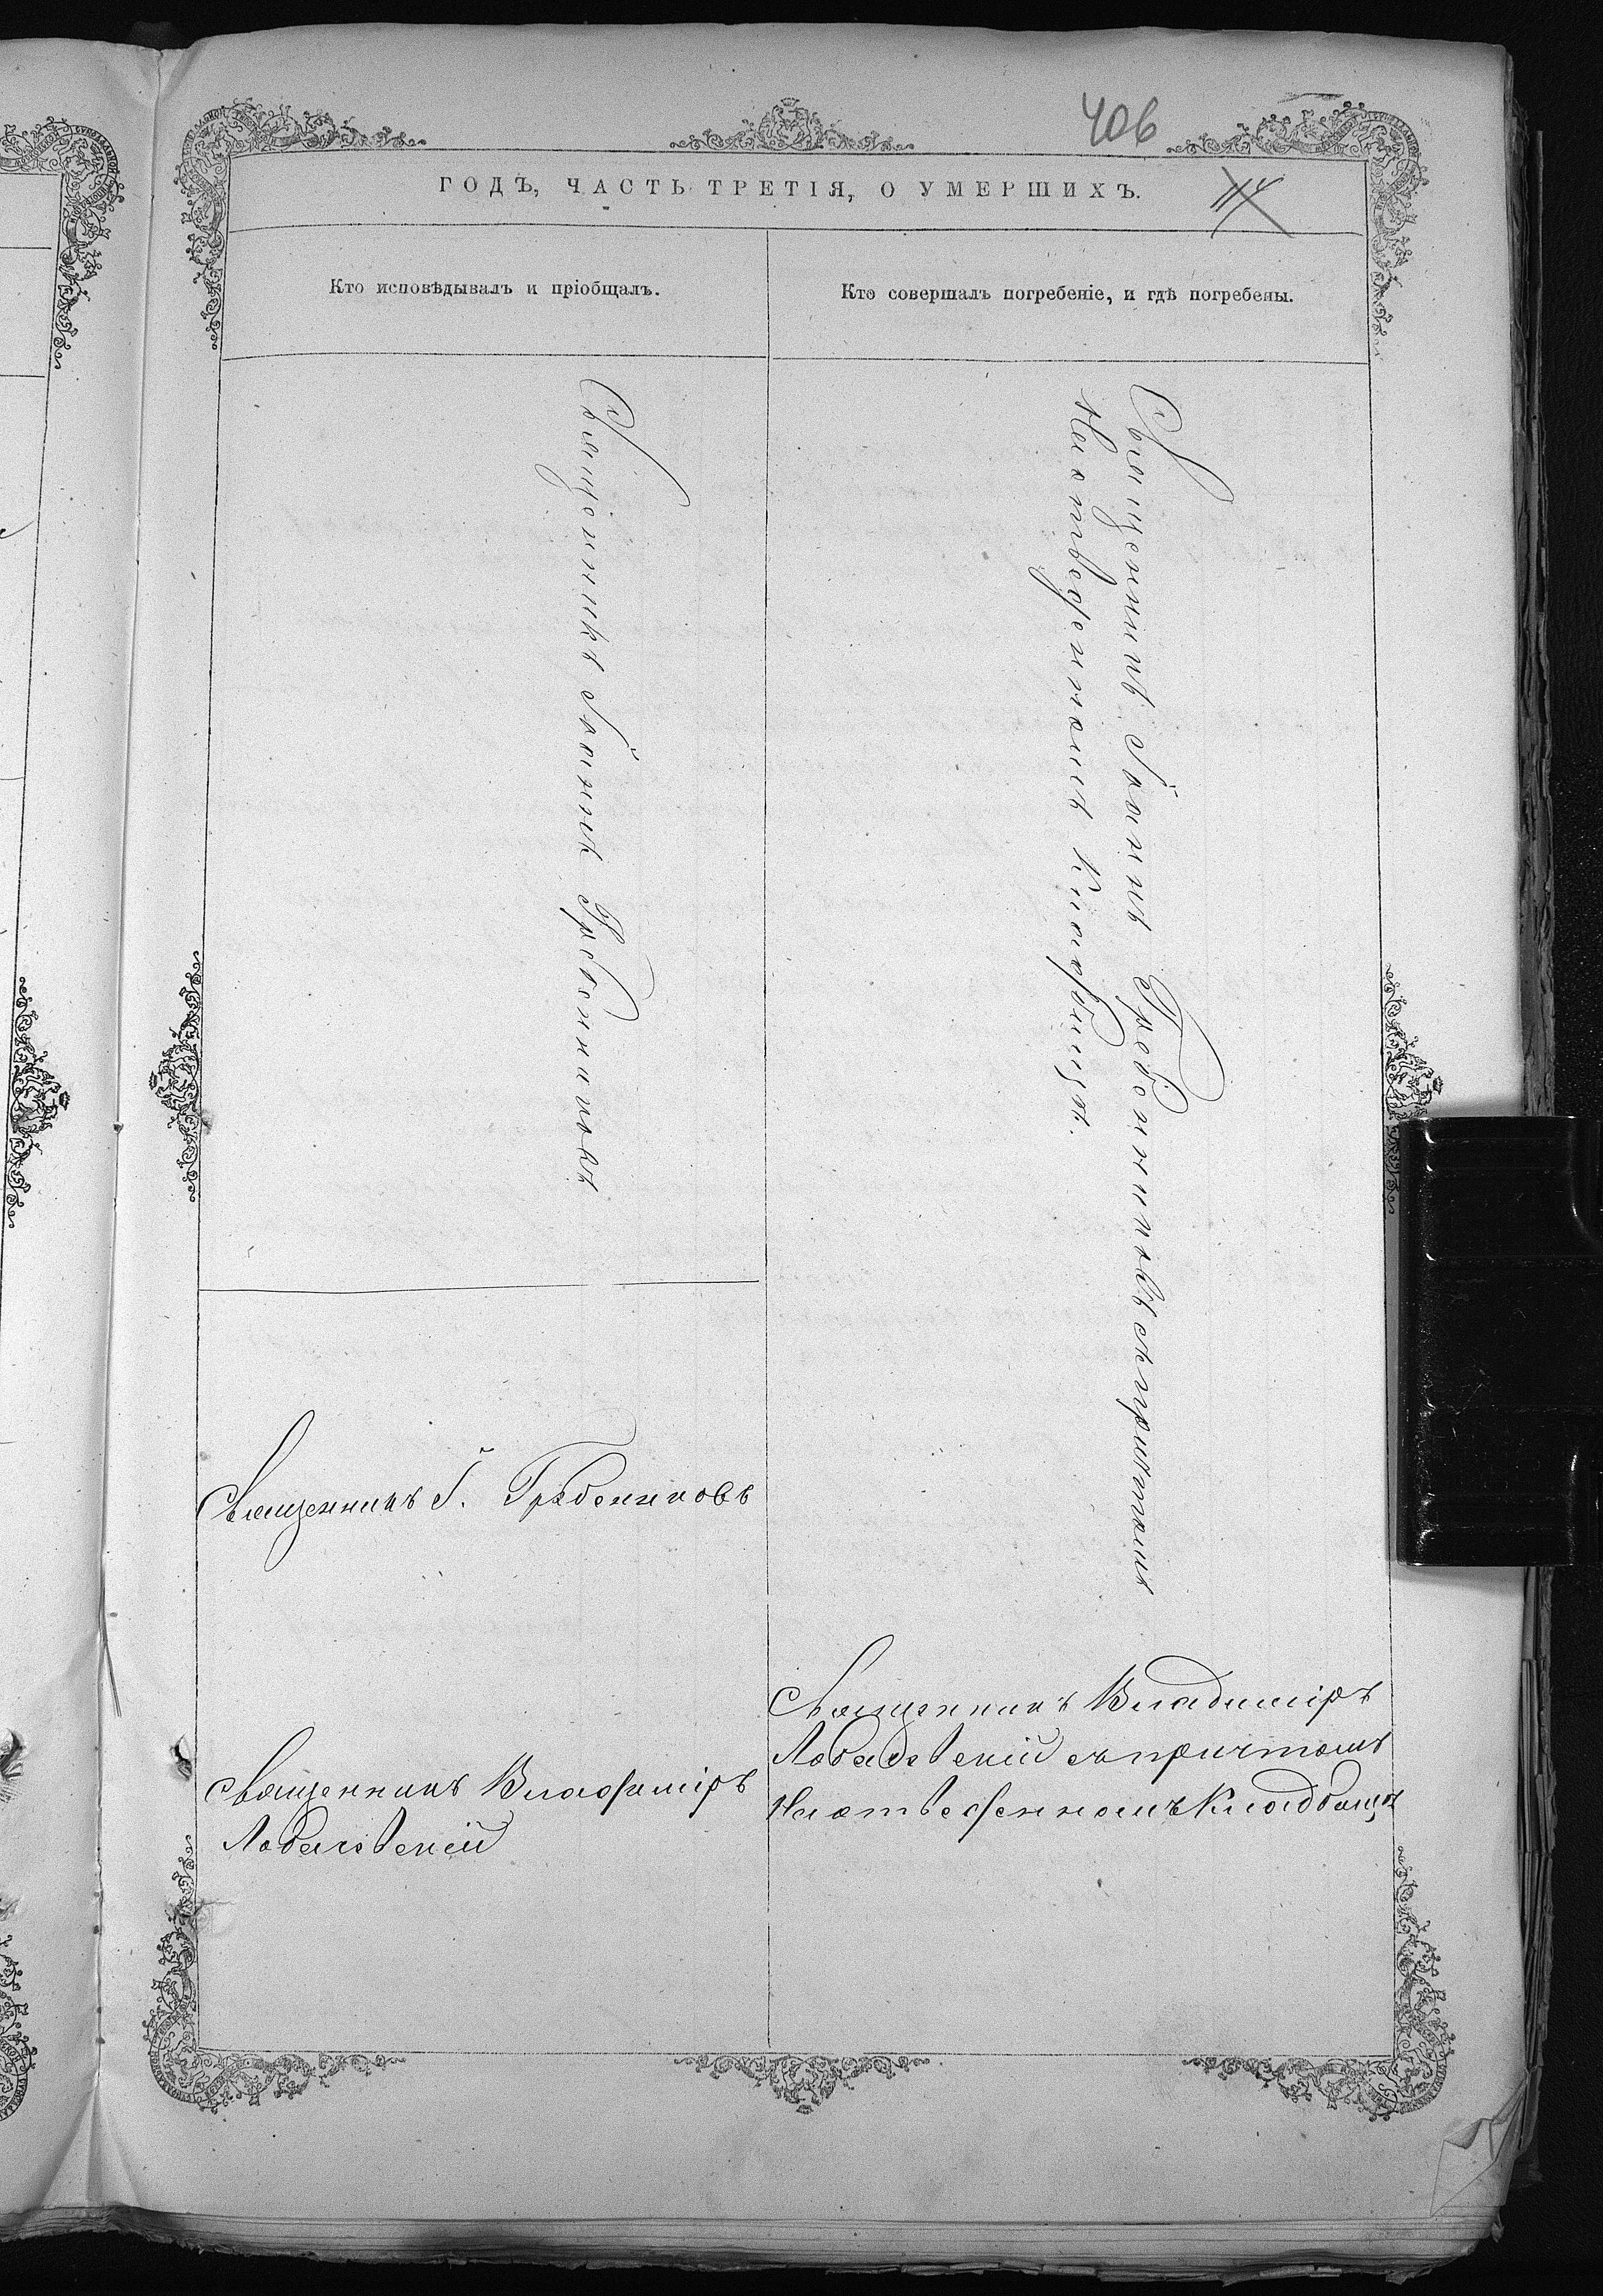 406
ГОДЪ, ЧАСТЬ ТРЕТІЯ, О УМЕРШИХЪ.
114
Кто исповѣдывалъ и пріобщалъ.
Кто совершалъ погребеніе, и гдѣ погребены.
Священникъ Іоаннъ Гребенниковъ
Священникъ Іоаннъ Гребенниковъ съ причтомъ
На отведенномъ кладбищѣ.
Священникъ І. Гребенниковъ
Священникъ Владиміръ
Священникъ Владиміръ
съ причтомъ
На отведенномъ Кладбищѣ